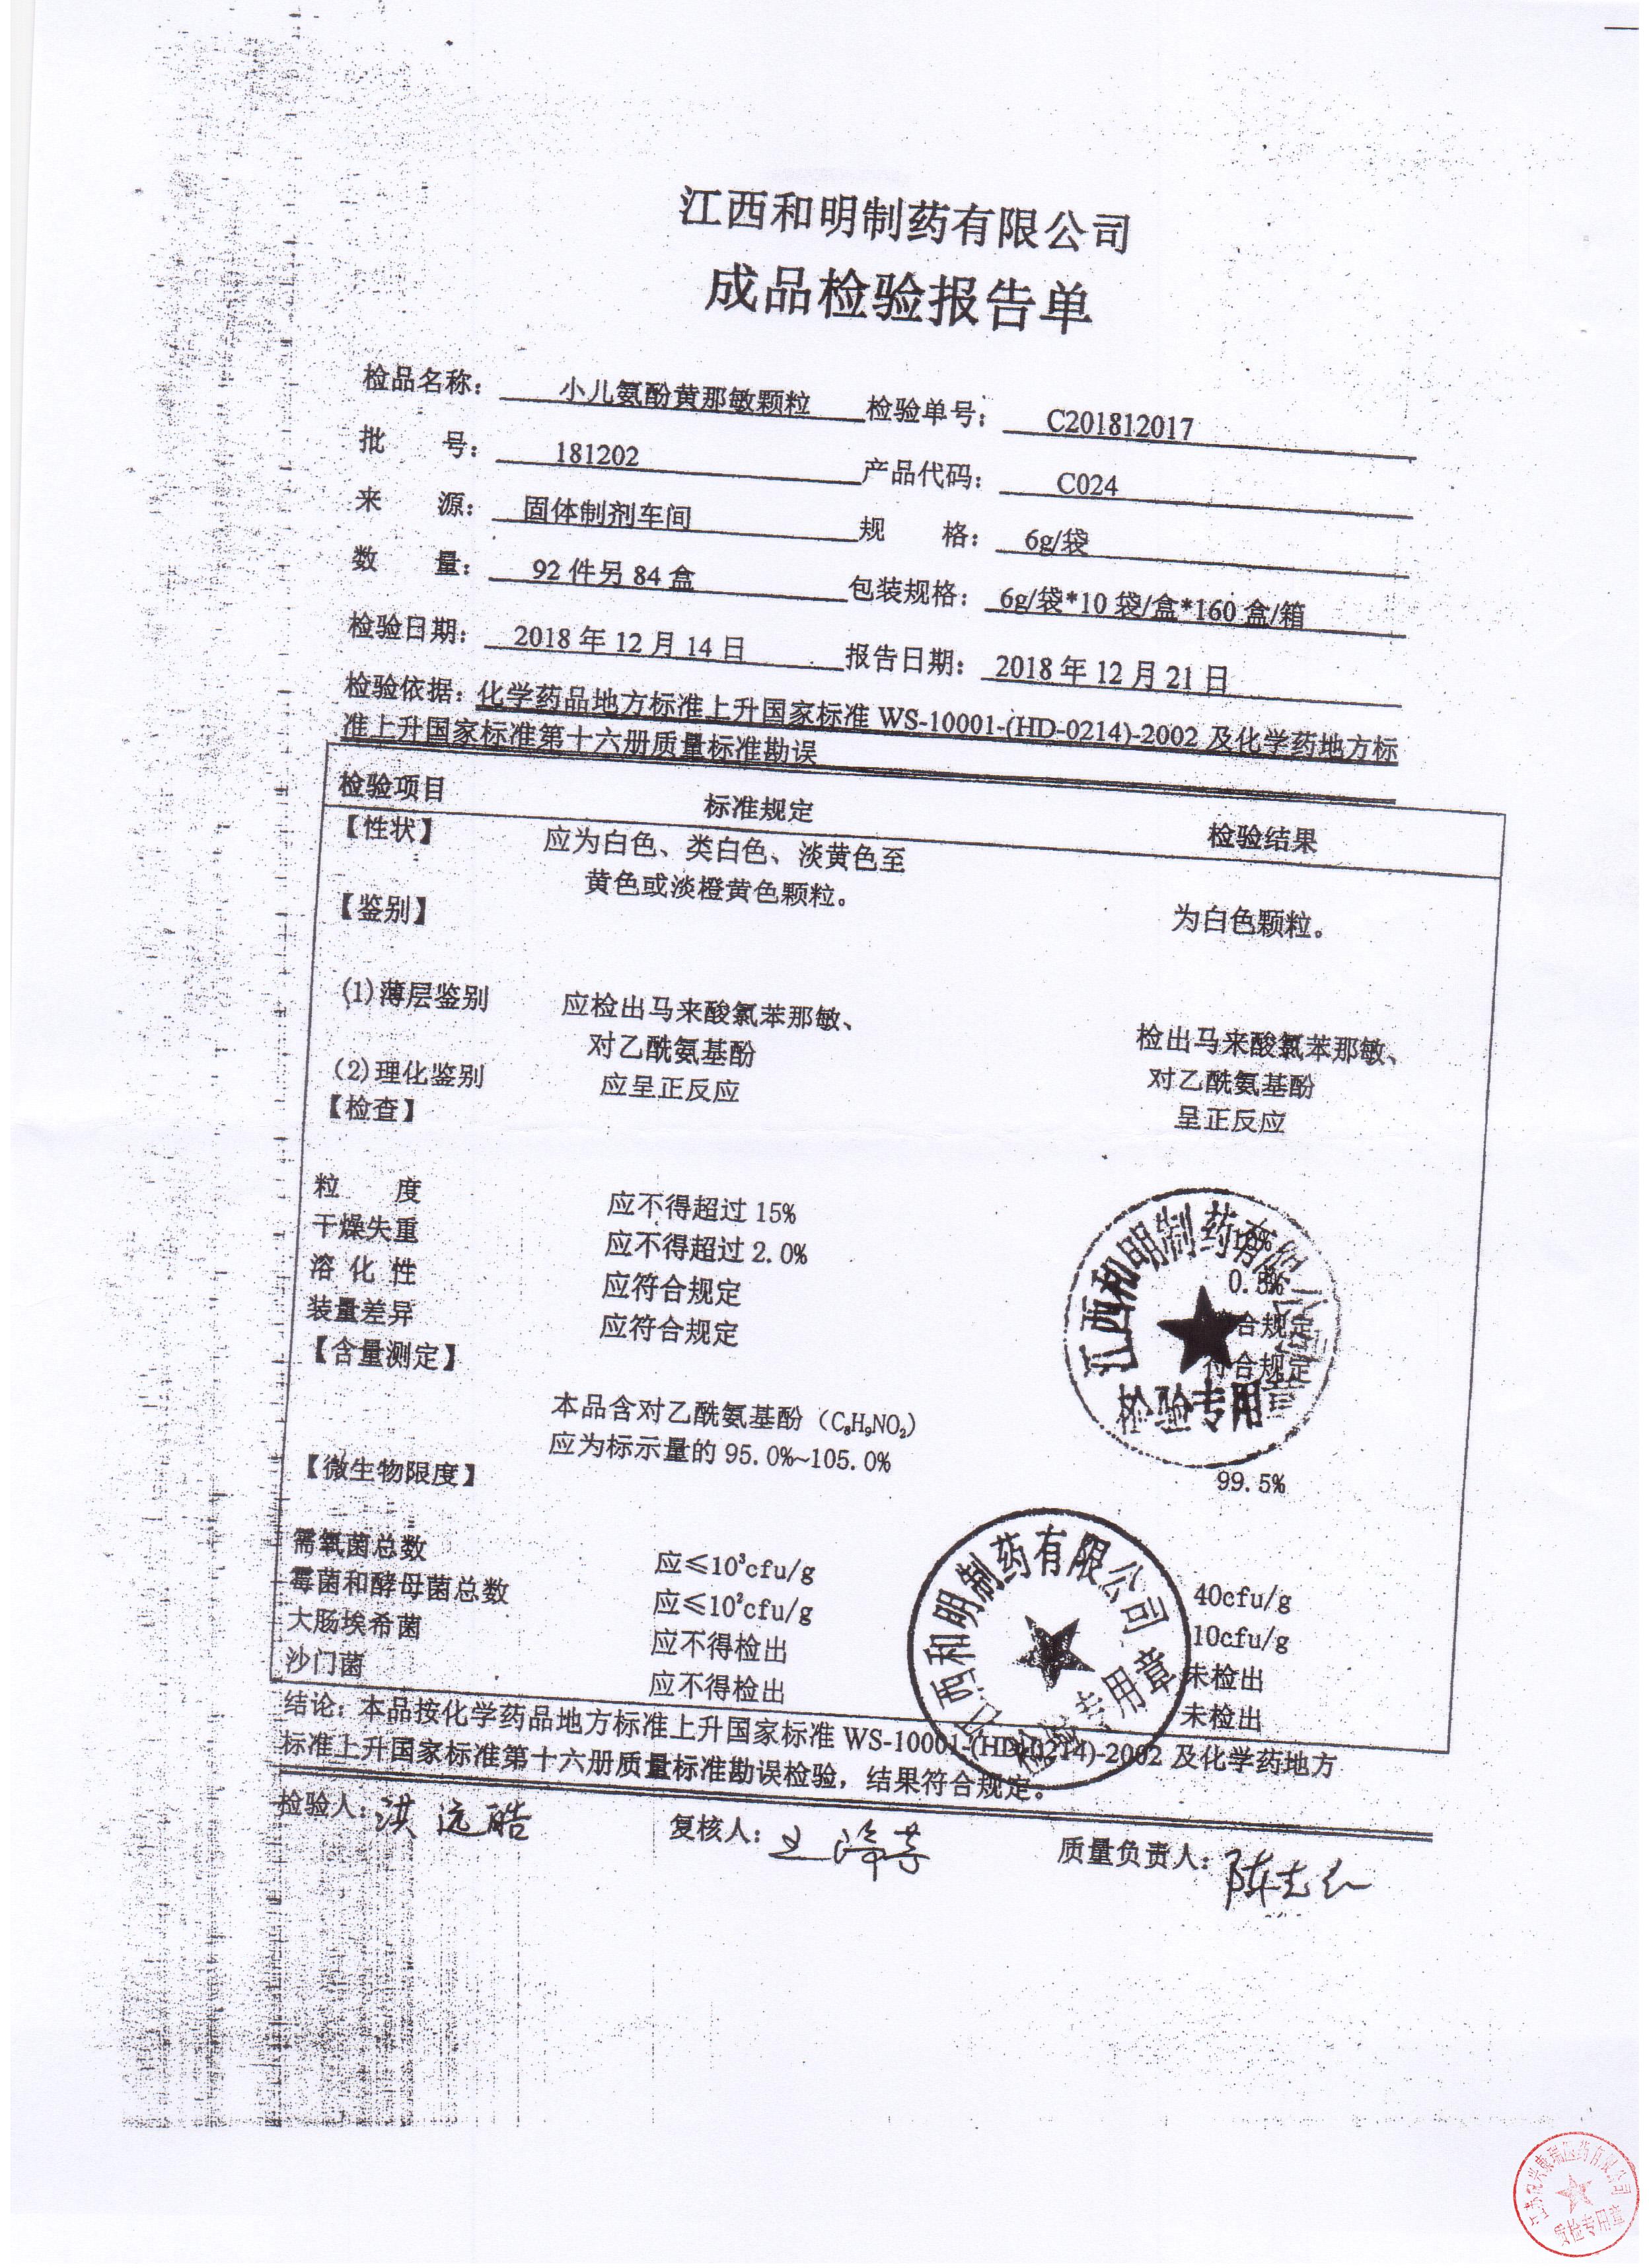 江西和明制药有限公司
成品检验报告单
检品名称: 小儿氨酚黄那敏颗粒 检验单号: C201812017
批 号: 181202 产品代码: C024
来 源: 固体制剂车间 规 格: 6g/袋
数 量: 92件另84盒 包装规格: 6g/袋*10袋/盒*160盒/箱
检验日期: 2018年12月14日 报告日期: 2018年12月21日
检验依据: 化学药品地方标准上升国家标准WS-10001-(HD-0214)-2002及化学药地方标
准上升国家标准第十六册质量标准勘误
检验项目 标准规定 检验结果
【性状】 应为白色、类白色、淡黄色至
黄色或淡橙黄色颗粒。 为白色颗粒。
【鉴别】
(1)薄层鉴别 应检出马来酸氯苯那敏、 检出马来酸氯苯那敏、
对乙酰氨基酚 对乙酰氨基酚
(2)理化鉴别 应呈正反应 呈正反应
【检查】
粒 度 应不得超过15%
干燥失重 应不得超过2.0%
溶 化 性 应符合规定 合规定
装量差异 应符合规定 符合规定
【含量测定】
本品含对乙酰氨基酚(C₈H₉NO₂)
应为标示量的95.0%~105.0% 99.5%
【微生物限度】
需氧菌总数 应≤10³cfu/g 40cfu/g
霉菌和酵母菌总数 应≤10²cfu/g 10cfu/g
大肠埃希菌 应不得检出 未检出
沙门菌 应不得检出 未检出
结论: 本品按化学药品地方标准上升国家标准WS-10001-(HD-0214)-2002及化学药地方
标准上升国家标准第十六册质量标准勘误检验，结果符合规定。
检验人: 洪远皓 复核人: 质量负责人:
江西和明制药有限公司
检验专用章
江西和明制药有限公司
检验专用章
质检专用章